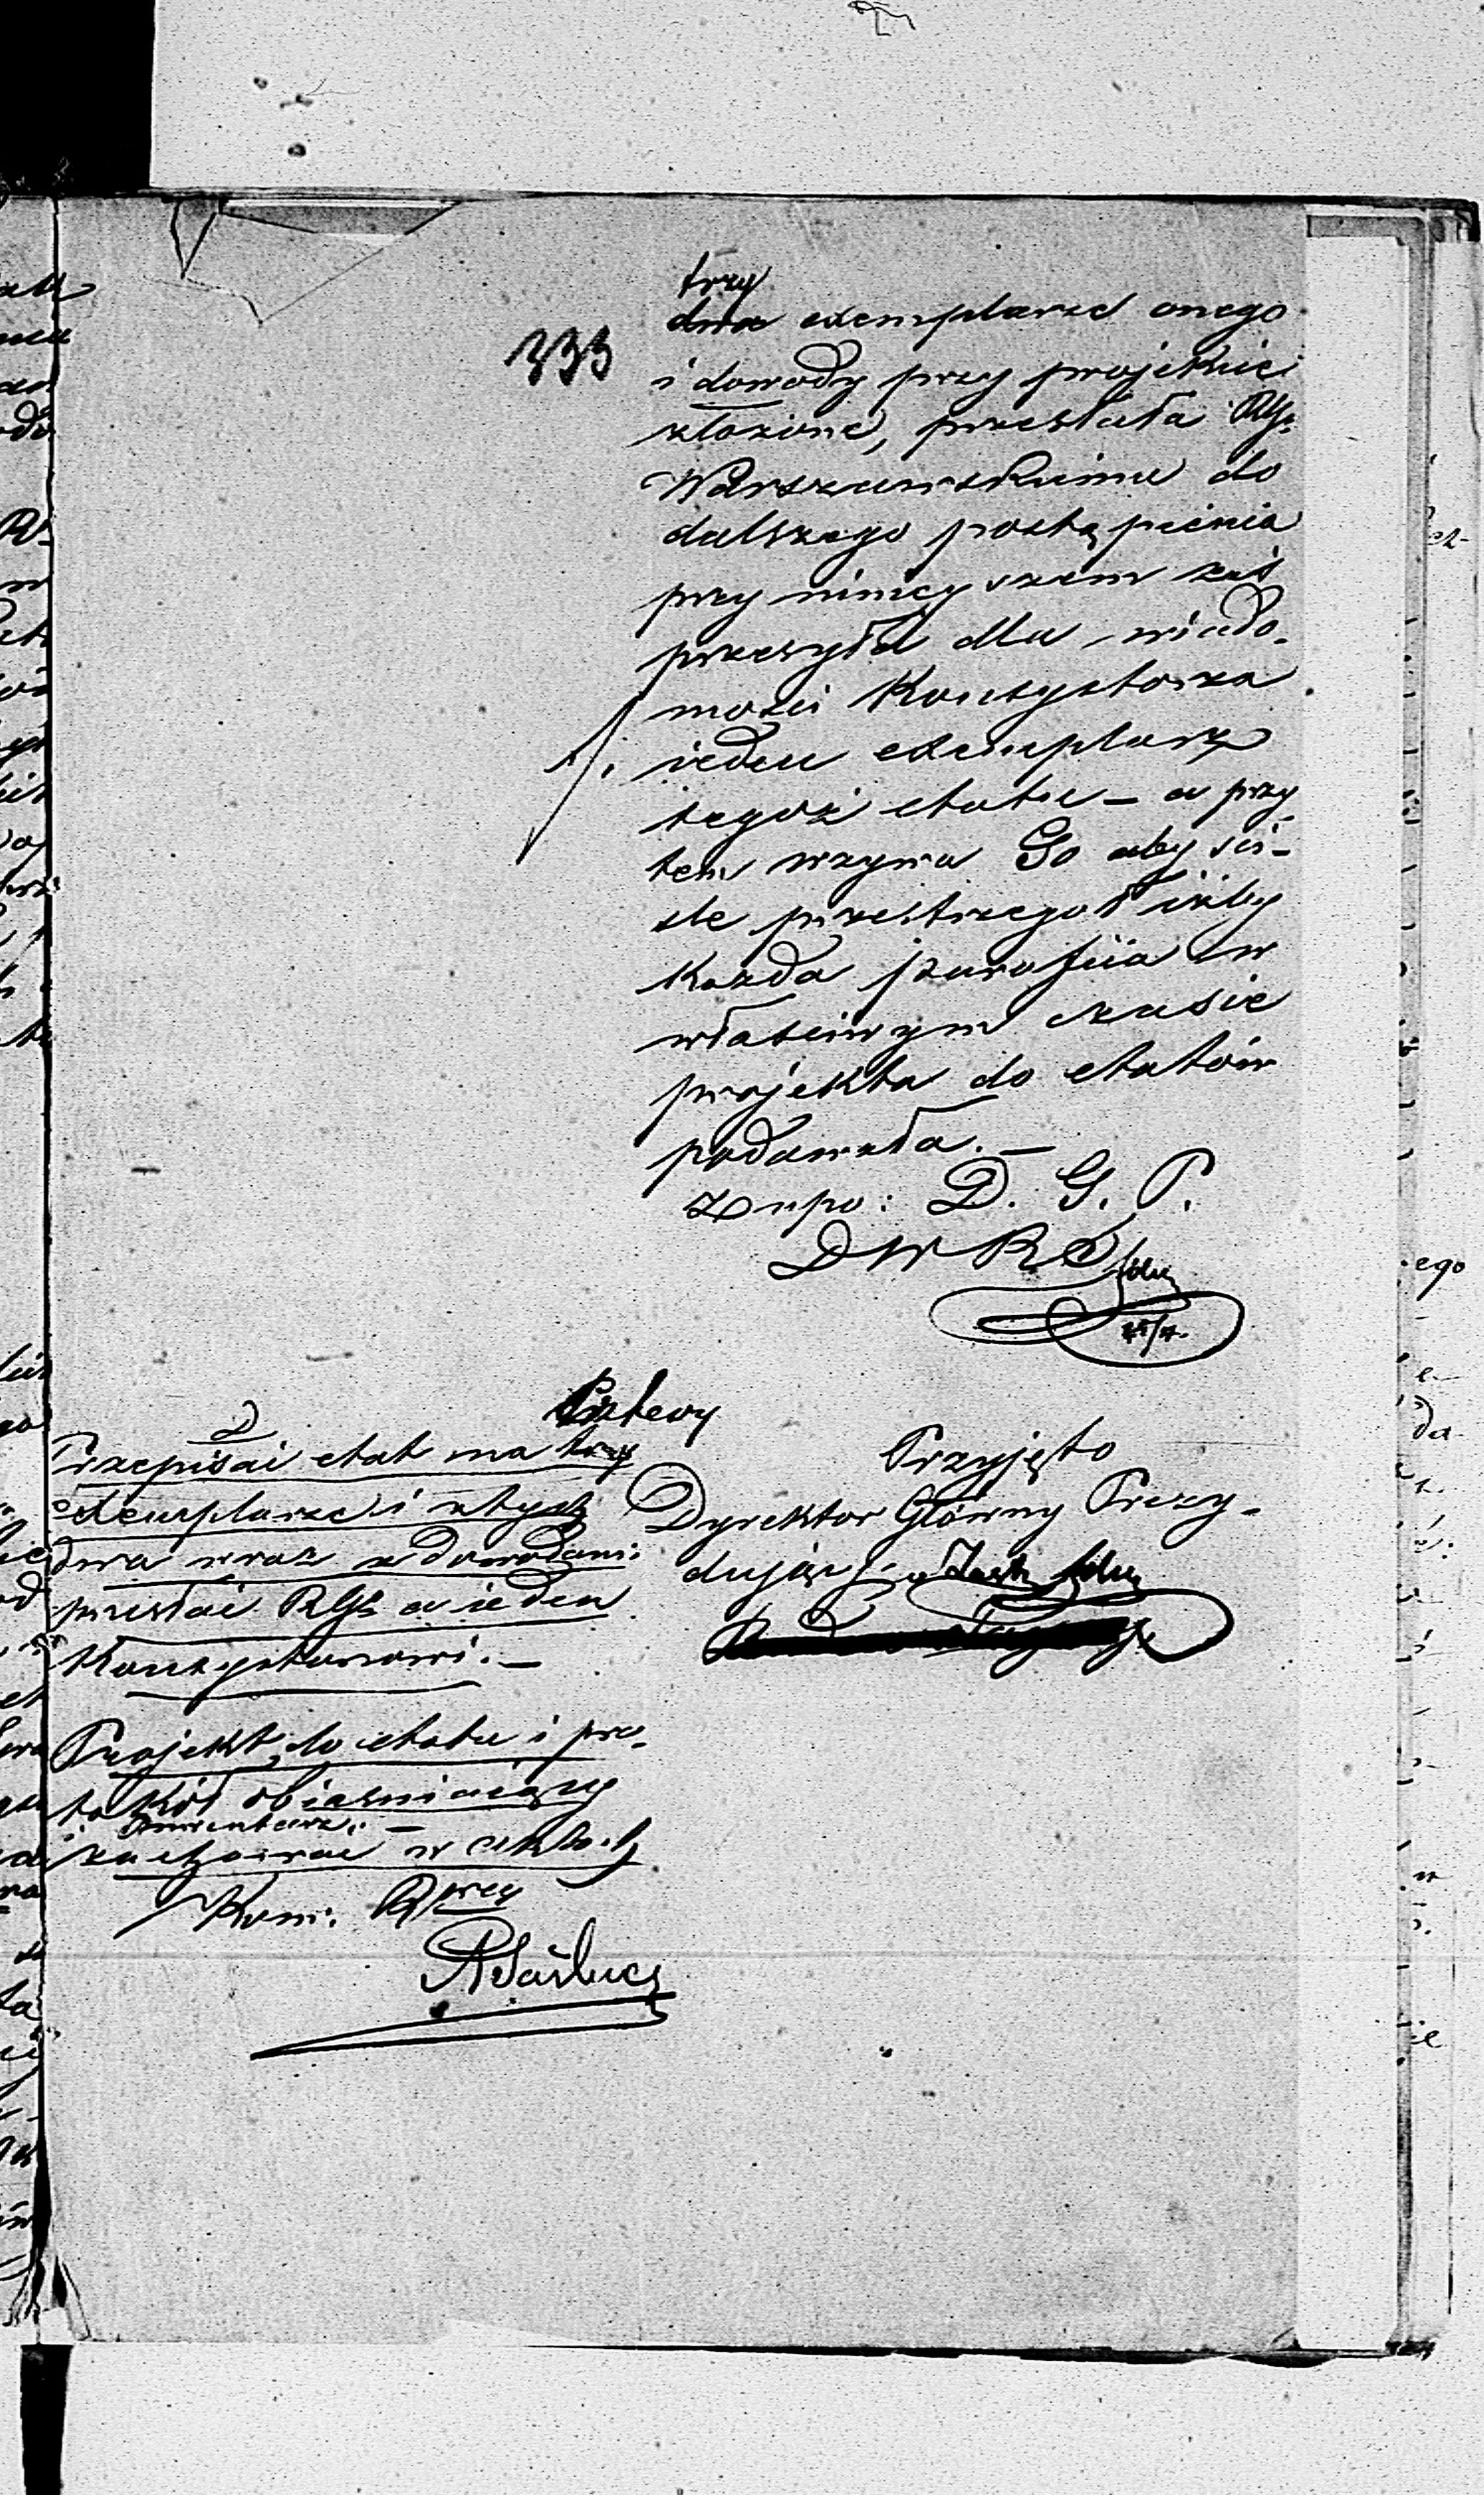 333
trzy
dwa exemplarze onego
i dowody przy projekcie
złożone, przesłała RG.
Warszawskiemu do
dalszego postąpienia
przy niniejszem zaś
przesyła dla wiado-
mości Konsystorza
ieden exemplarz
tegoż etatu – a przy
tem wzywa Go aby ści-
śle przestrzegał iżby
każda parafia w
właściwym czasie
projekta do etatów
podawała. –
z upo: D. G. P.
DWR
Przyjęto
Dyrektor Główny Prezy-
dujący
Przepisać etat na trzy
exemplarze i z tych
dwa wraz z dowodami
przesłać RGW a ieden
Konsystorzowi. –
Projekt do etatu i pro-
tokół obiaśniaiący
i inwentarz. –
zachować w aktach